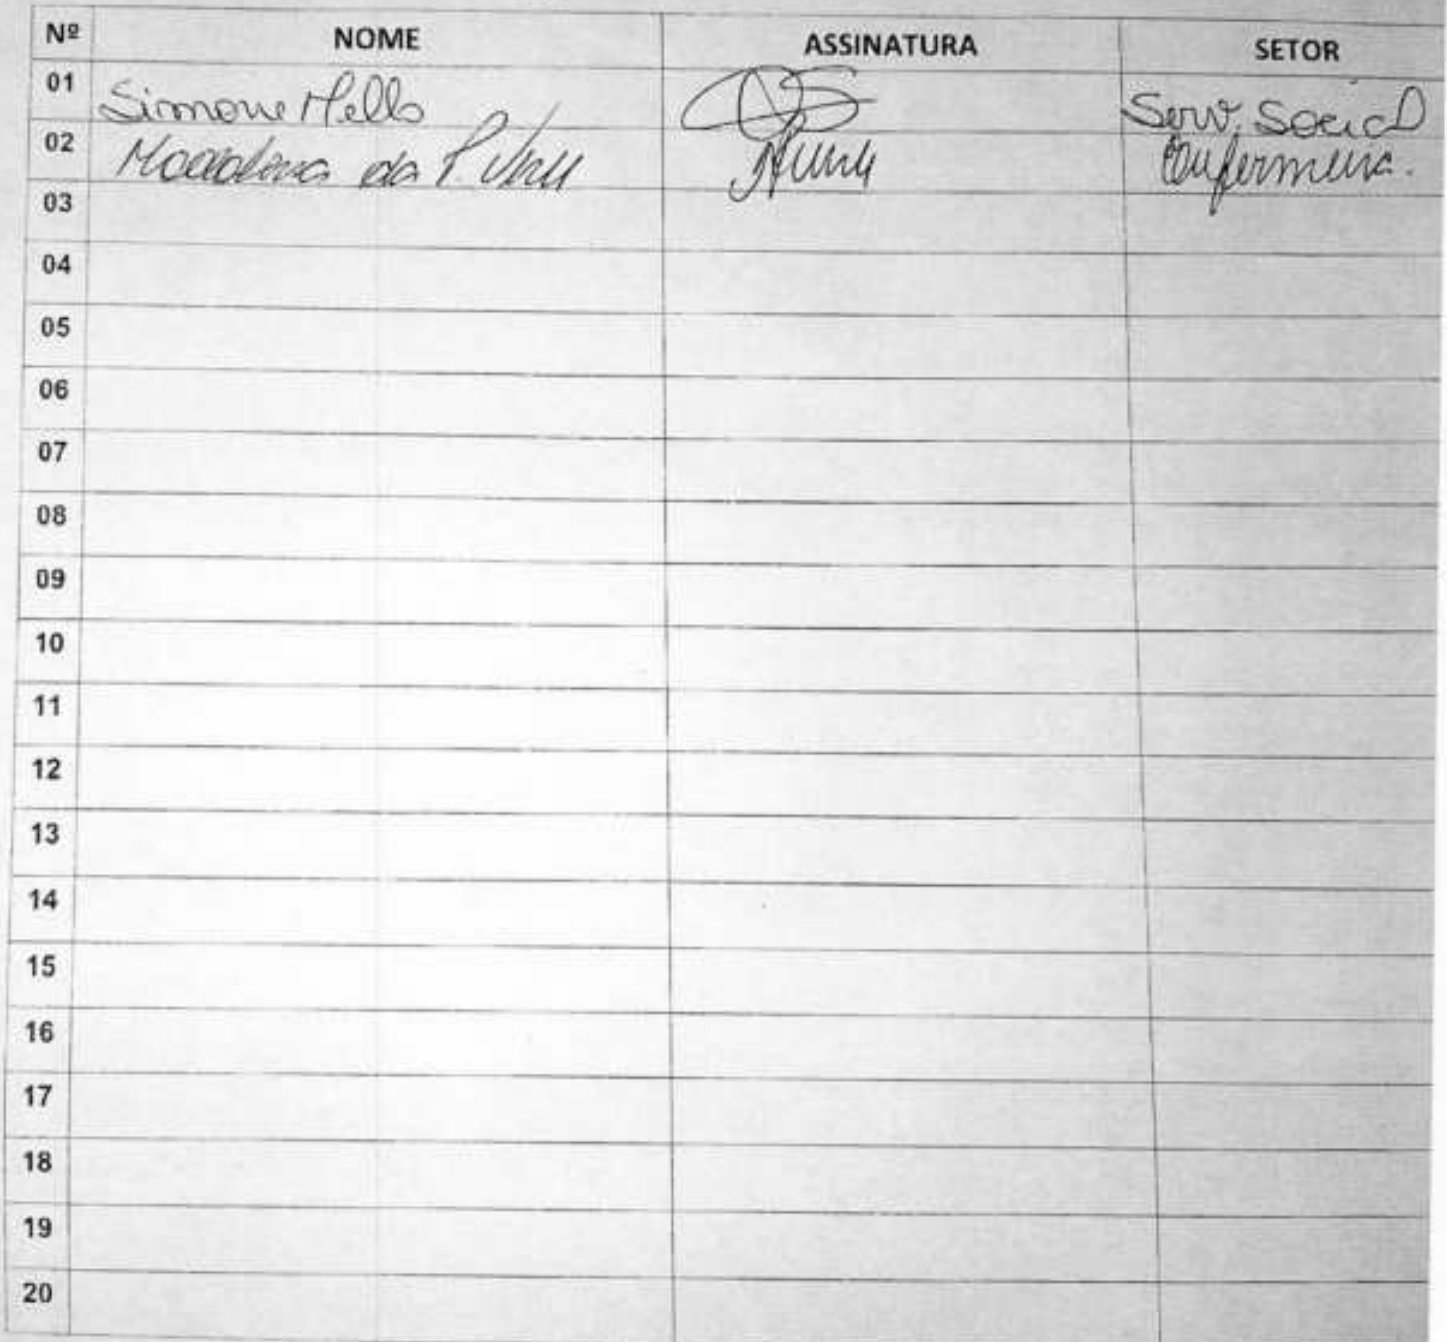 Nº NOME ASSINATURA SETOR
01 Simone Mello Serv. Social
02 da P. Enfermeira.
03
04
05
06
07
08
09
10
11
12
13
14
15
16
17
18
19
20